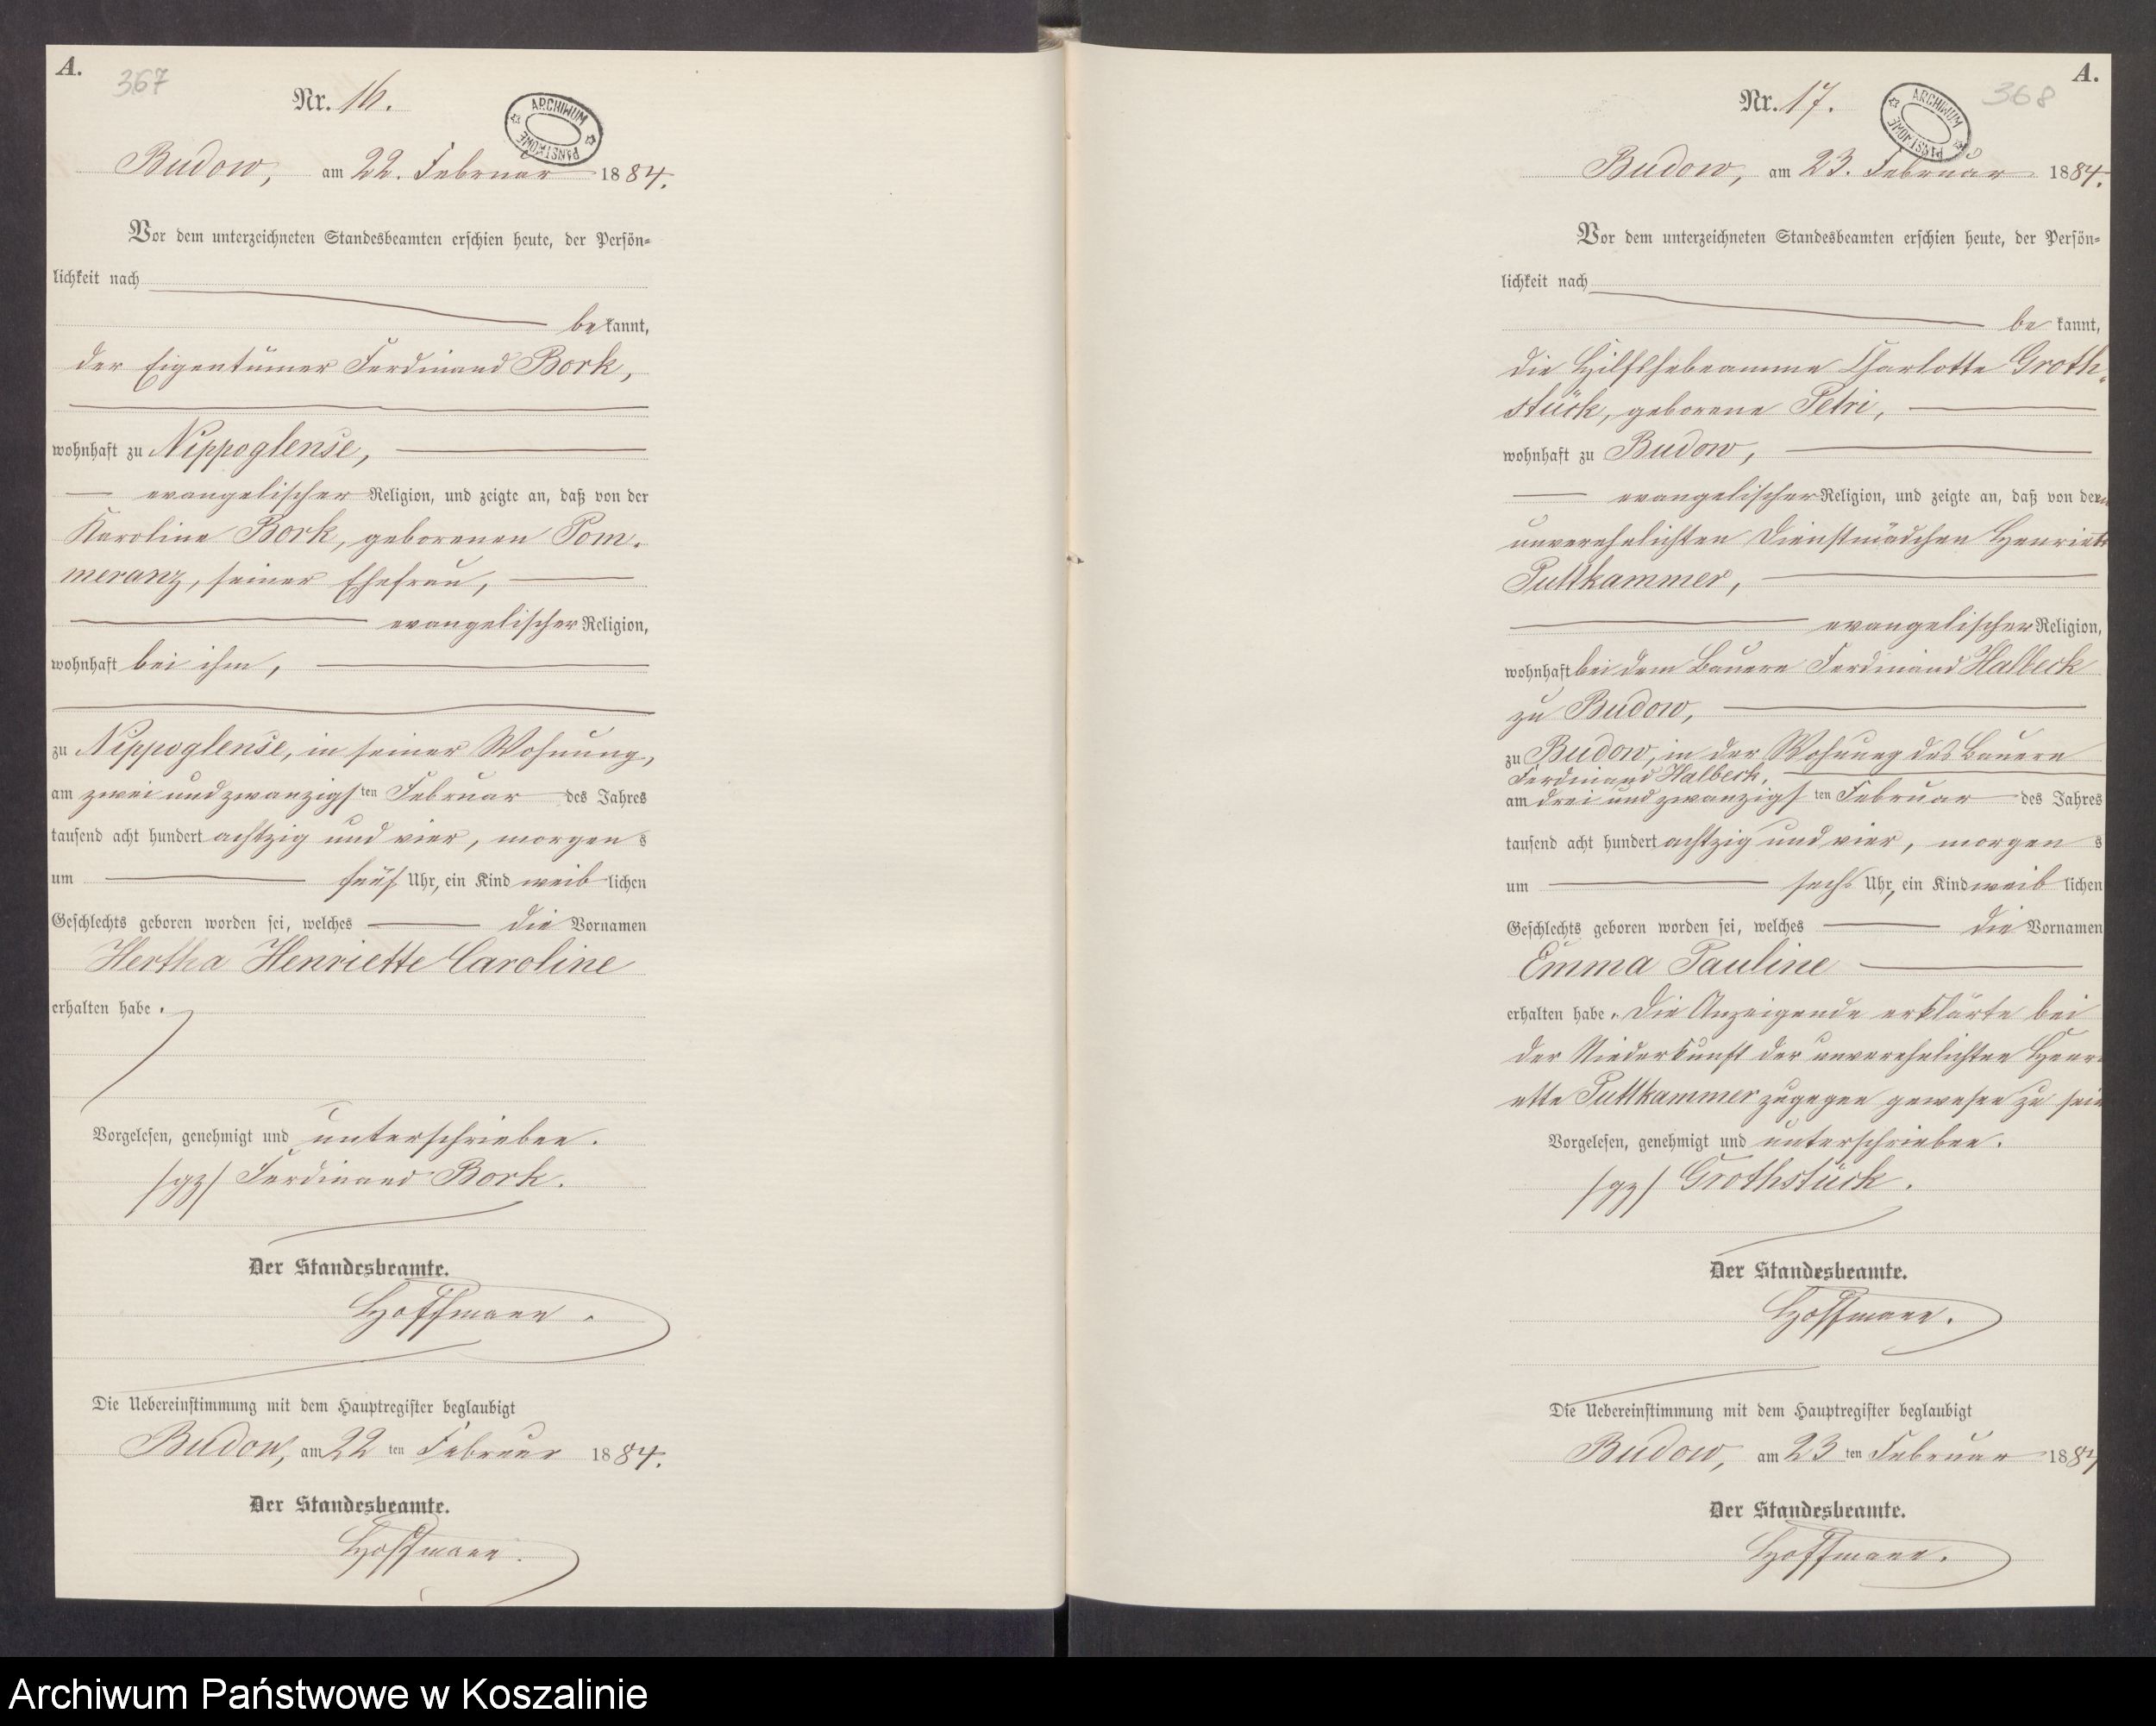 A.
367
Nr. 16.
ARCHIWUM PAŃSTWOWE
Budow, am 22. Februar 1884.
Vor dem unterzeichneten Standesbeamten erschien heute, der Persön-
lichkeit nach
bekannt,
der Eigentümer Ferdinand Bork,
wohnhaft zu Nippoglense,
evangelischer Religion, und zeigte an, daß von der
Karoline Bork, geborenen Pom-
meranz, seiner Ehefrau,
evangelischer Religion,
wohnhaft bei ihm,
zu Nippoglense, in seiner Wohnung,
am zwei und zwanzigsten Februar des Jahres
tausend acht hundert achtzig und vier, morgens
um fünf Uhr, ein Kind weiblichen
Geschlechts geboren worden sei, welches die Vornamen
Hertha Henriette Caroline
erhalten habe.
Vorgelesen, genehmigt und unterschrieben.
/gz/ Ferdinand Bork.
Der Standesbeamte.
Hoffmann.
Die Uebereinstimmung mit dem Hauptregister beglaubigt
Budow, am 22ten Februar 1884.
Der Standesbeamte.
Hoffmann.
A.
368
Nr. 17.
ARCHIWUM PAŃSTWOWE
Budow, am 23. Februar 1884.
Vor dem unterzeichneten Standesbeamten erschien heute, der Persön-
lichkeit nach
bekannt,
die Hilfshebeamme Charlotte Groth-
stück, geborene Petri,
wohnhaft zu Budow,
evangelischer Religion, und zeigte an, daß von dem
unverehelichten Dienstmädchen Henriette
Puttkammer,
evangelischer Religion,
wohnhaft bei dem Bauern Ferdinand Halbeck
zu Budow,
zu Budow, in der Wohnung des Bauern
Ferdinand Halbeck,
am drei und zwanzigsten Februar des Jahres
tausend acht hundert achtzig und vier, morgens
um sechs Uhr, ein Kind weiblichen
Geschlechts geboren worden sei, welches die Vornamen
Emma Pauline
erhalten habe. Die Anzeigende erklärte bei
der Niederkunft der unverehelichten Henri
ette Puttkammer zugegen gewesen zu sein
Vorgelesen, genehmigt und unterschrieben.
/gz/ Grothstück.
Der Standesbeamte.
Hoffmann.
Die Uebereinstimmung mit dem Hauptregister beglaubigt
Budow, am 23ten Februar 1884
Der Standesbeamte.
Hoffmann.
Archiwum Państwowe w Koszalinie